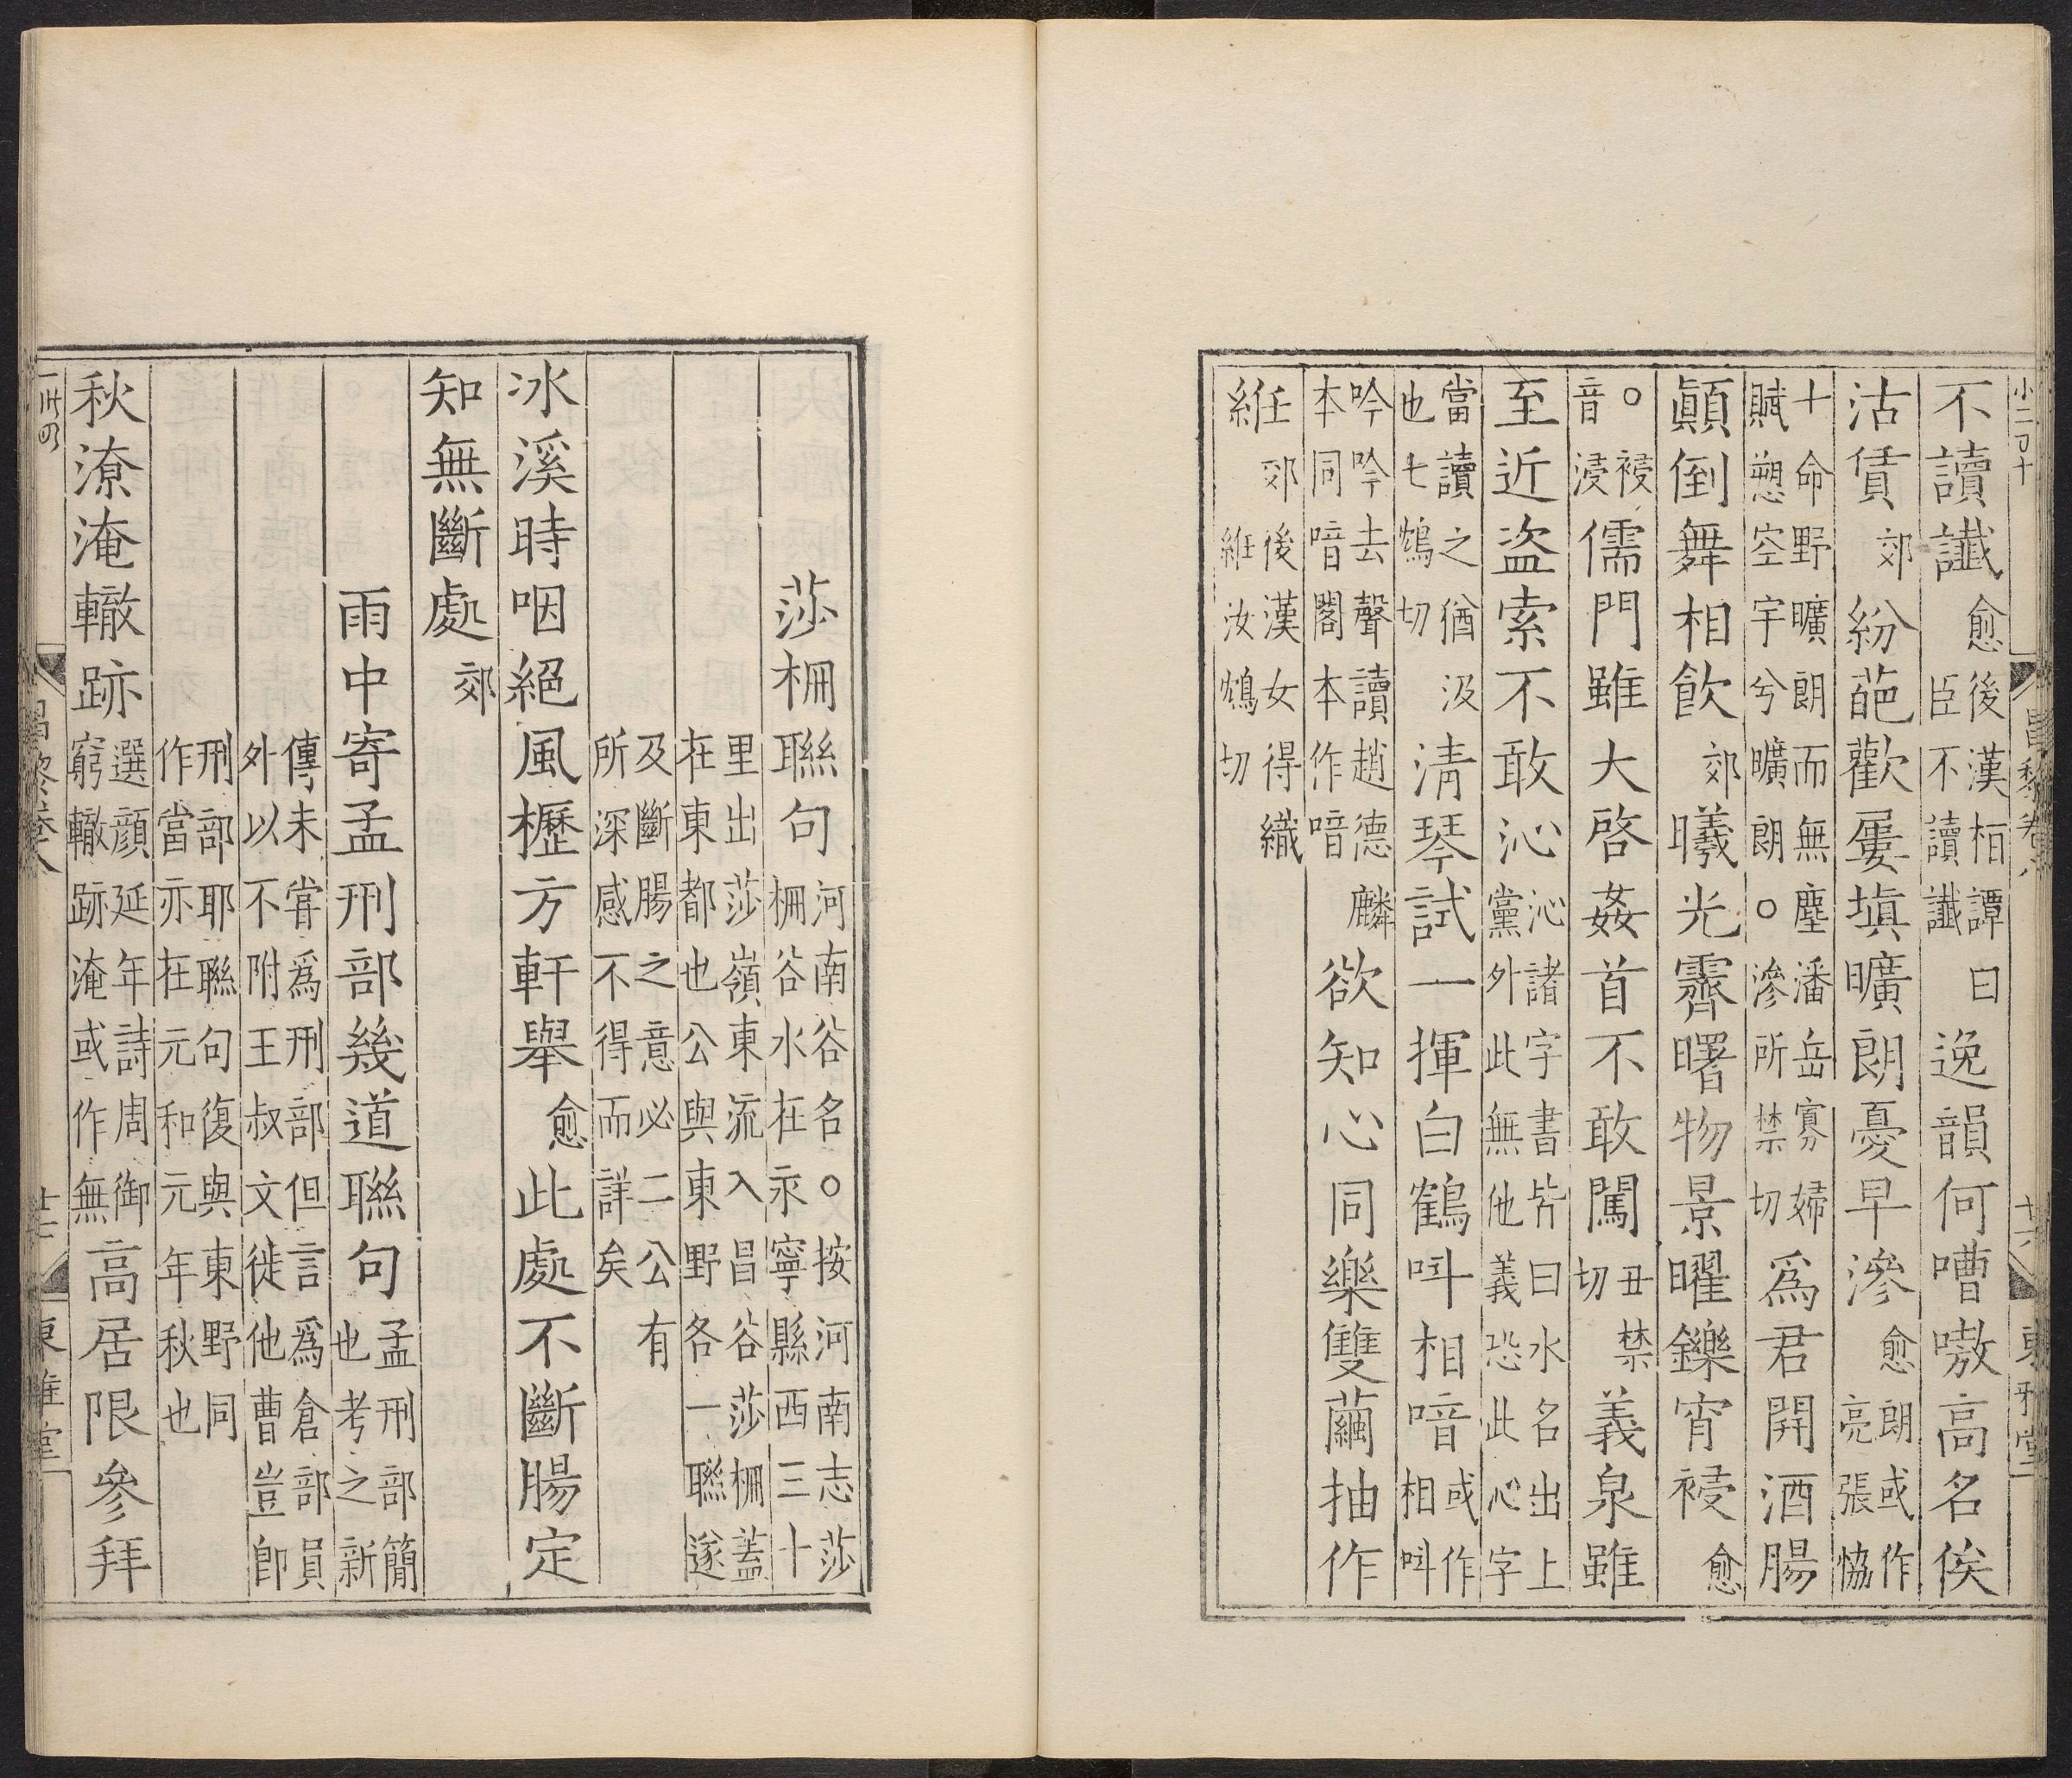 不讀讖愈後漢栢譚曰臣不讀讖逸韻何嘈嗷高名俟
沽賃郊紛葩歡屢塡曠朗憂早滲愈朗或作亮張恊
十命野曠朗而無塵潘岳寡婦賦愬空宇兮曠朗○滲所禁切爲君開酒腸
顚倒舞相飮郊曦光霽曙物景曜鑠宵祲愈
○祲音浸儒門雖大啓姦首不敢闖丑禁切義泉雖
至近盜索不敢沁沁諸字書皆曰水名出上黨外此無他義恐此沁字
當讀之猶汲也七鴆切淸琴試一揮白鶴呌相喑或作相呌
吟吟去聲讀趙德麟本同喑閣本作喑欲知心同樂雙繭抽作
紝郊後漢女得織紝汝鴆切
莎柵聯句河南谷名○按河南志莎柵谷水在永寧縣西三十
里出莎嶺東流入昌谷莎柵蓋在東都也公與東野各一聯遂
及斷腸之意必二公有所深感不得而詳矣
冰溪時咽絕風櫪方軒舉愈此處不斷腸定
知無斷處郊
雨中寄孟刑部幾道聯句孟刑部簡也考之新
傳未甞爲刑部但言爲倉部員外以不附王叔文徙他曹豈卽
刑部耶聯句復與東野同作當亦在元和元年秋也
秋潦淹轍跡選顔延年詩周御窮轍跡淹或作無高居限參拜
昌黎卷八
廿六
東雅堂
昌黎卷八
廿七
東雅堂